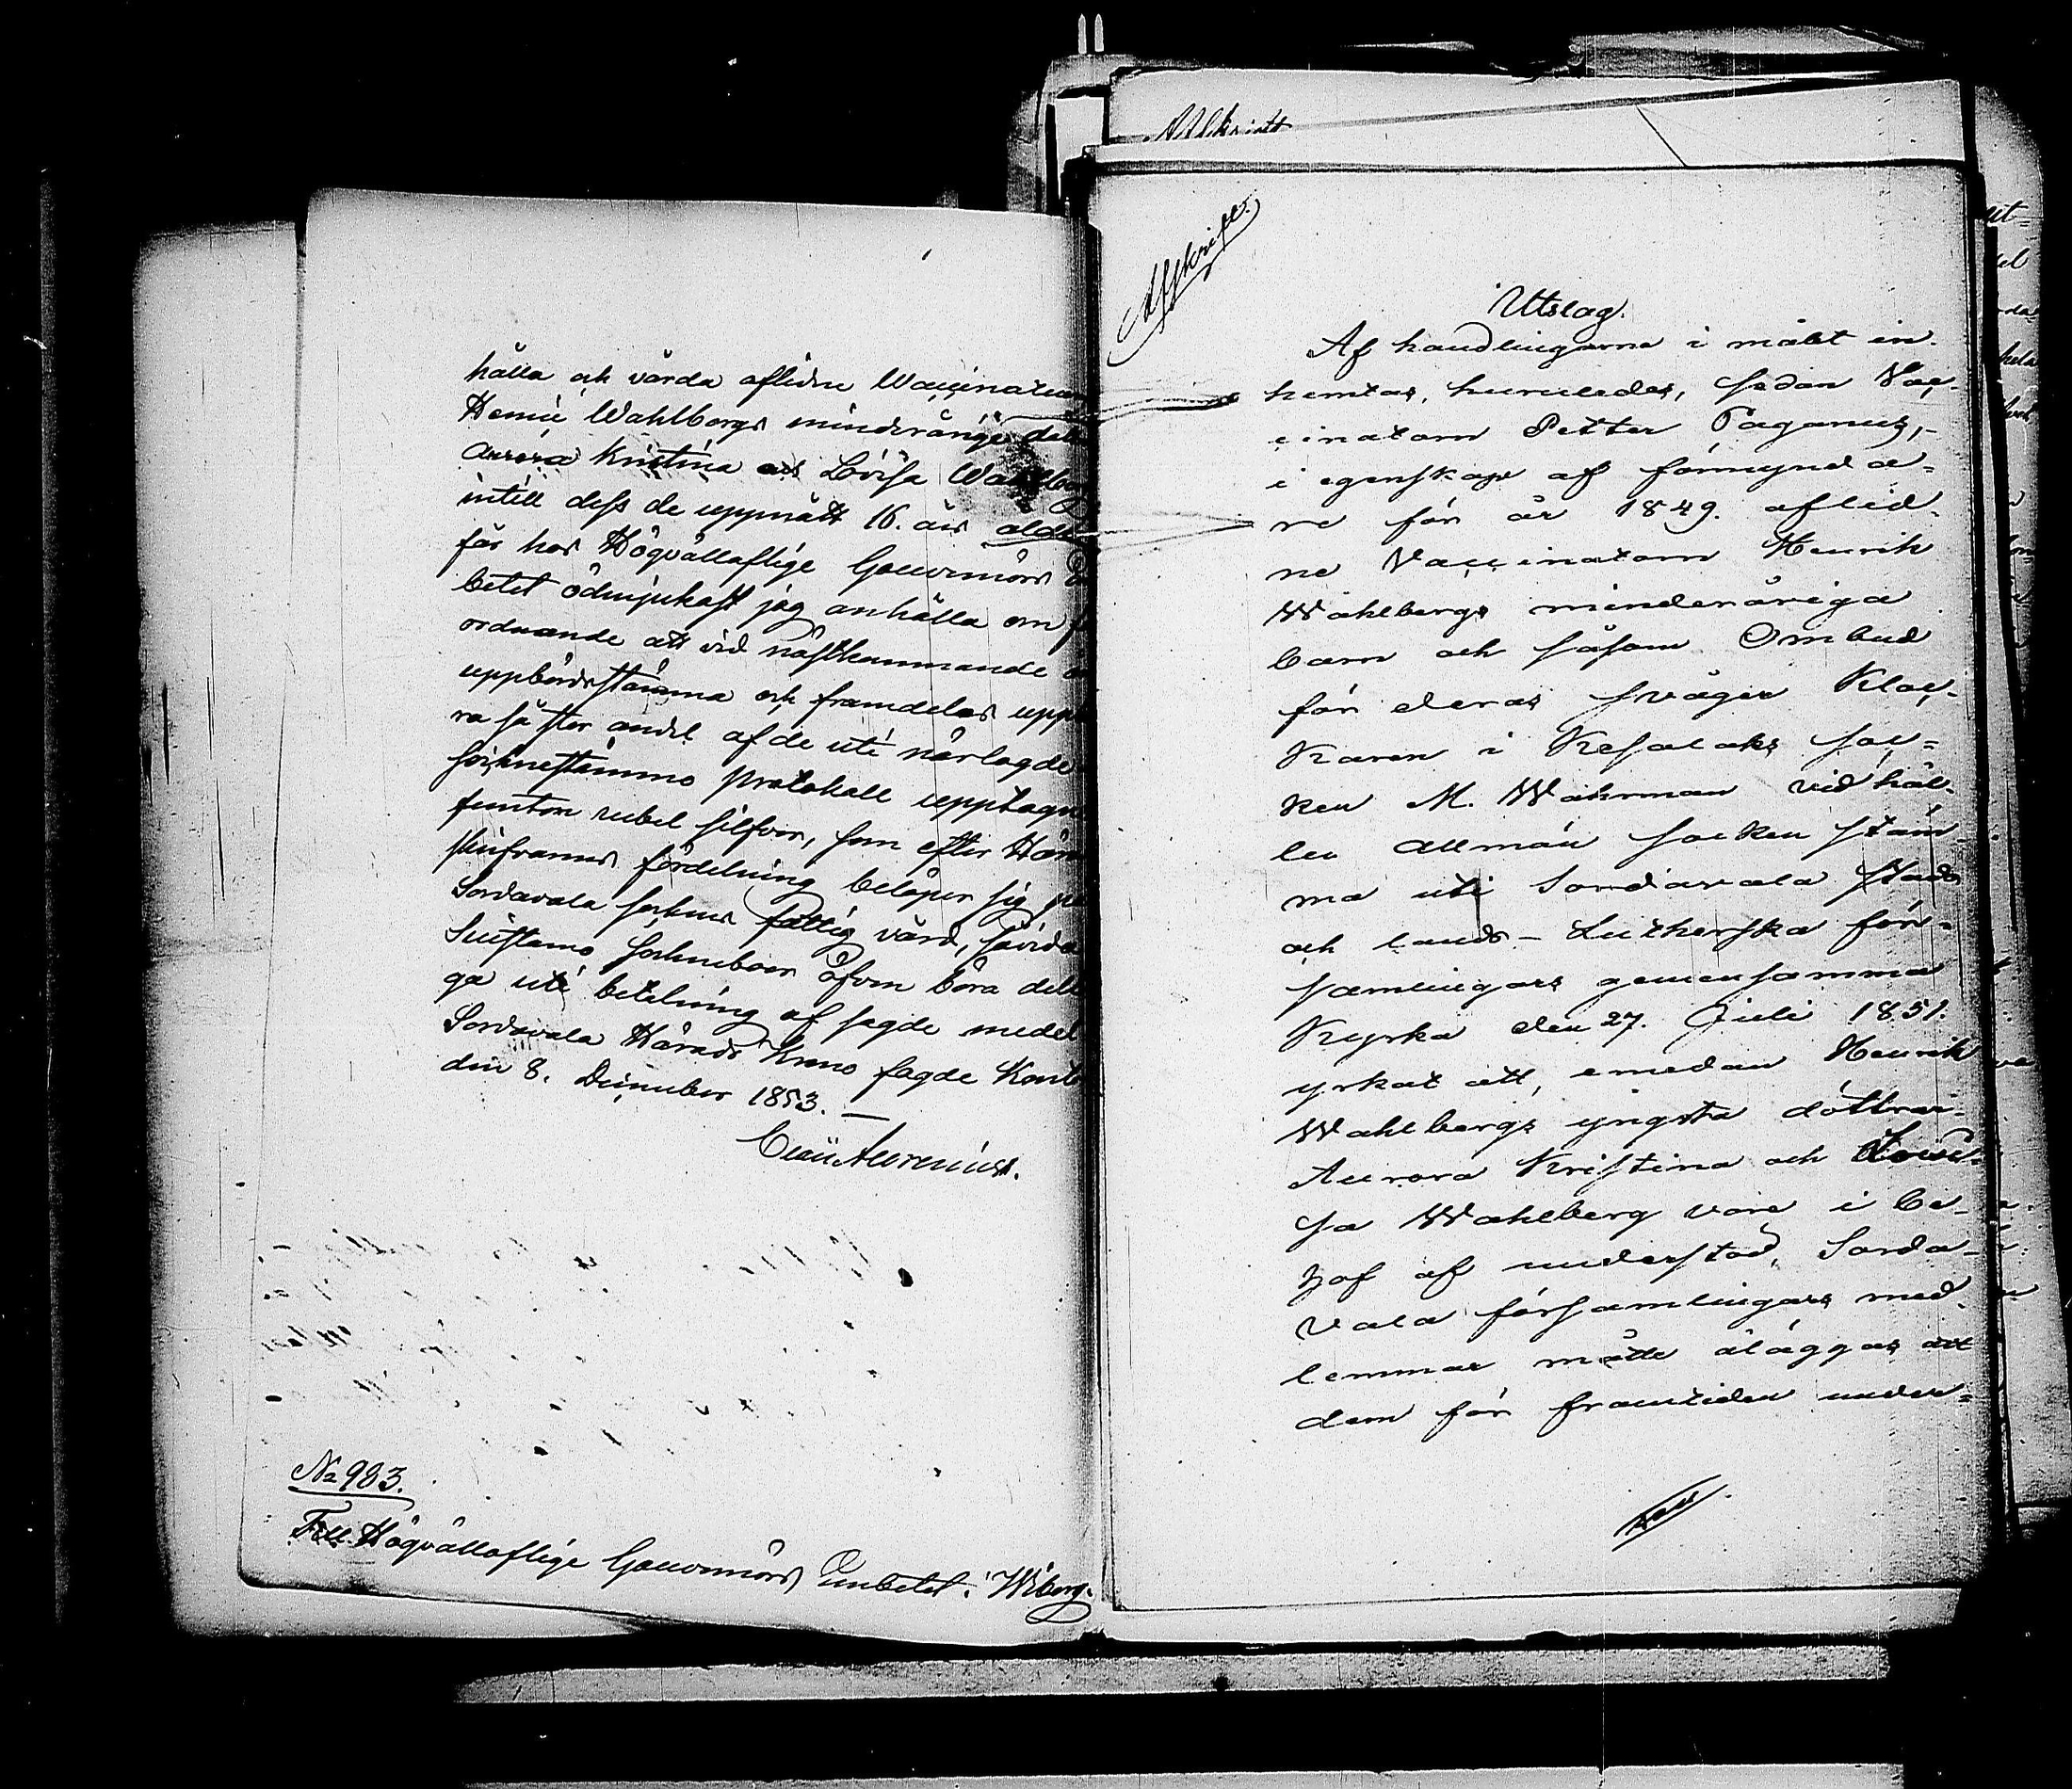 hålla och vårda aflidne Waccinateur
Henric Wahlbergs minderårige
Aurora Kristina och Lovisa Wahlberg
intill dess de uppnått 16. års ålder
får hos Högvälloflige Gouvernörs
betet ödmjukast jag anhålla om
ordnande att vid nästkommande
uppbördsstämma och framdeles upp
ra så stor andel af de uti närlagde
sockenstämmo protokoll upptagne
femton rubel silfver, som efter
skriframs fördelning belöper sig på
Sordavala sockens fattig vård, såvida
Suistamo sockneboer äfven böra delta
ga uti betalning af sagde medel
Sordavala Härads Krono fogde Kont
den 8. December 1853. —
Clas Alfrenius.
No 983.
Till Högvälloflige Gouvernörs Embetet i Wiborg.
Afskrift.
Utslag.
Af handlingarne i målet in-
hemtas, hurusledes, sedan Vac-
cinatorn Petter Paganus,
i egenskap af förmynda-
re för år 1849. aflid-
ne Vaccinatorn Henrik
Wahlbergs minderåriga
barn och såsom Ombud
för deras svåger Kloc-
karen i Kesalaks soc-
ken M. Wahrman vid hål-
len allmän socken stäm
ma uti Sordavala stads
och lands- Lutherska för-
samlingars gemensamma
Kyrka den 27. Juli 1851.
yrkat att, emedan Henrik
Wahlbergs yngsta döttrar
Aurora Kristina och Lovi-
sa Wahlberg vore i be-
hof af understöd, Sorda-
vala församlingars med-
lemmar måtte åläggas att
dem för framtiden under-